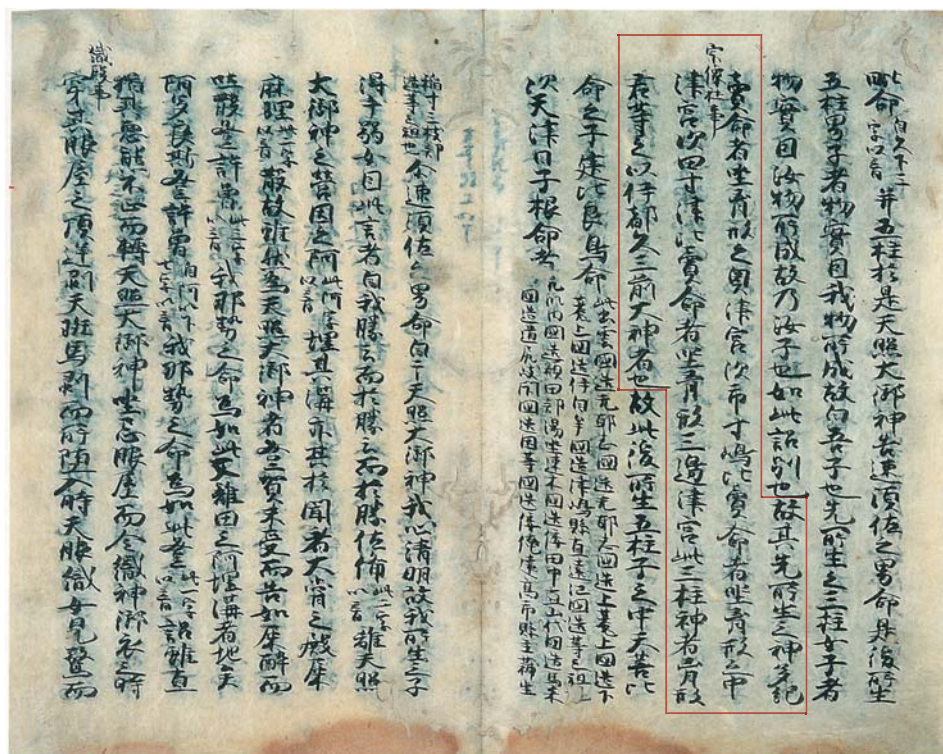 此命自久下三字以音并五柱於是天照大御神告速須佐之男命是後所生
五柱男子者物實因我物所成故自吾子也先所生之三柱女子者
物實因汝物所成故乃汝子也如此詔別也故其先所生之神多紀
宗像社事
賣命者坐胷形之奥津宮次市寸嶋比賣命者坐胷形之中
津宮次田寸津比賣命者坐胷形之邊津宮此三柱神者胷形
君等之以伊都久三前大神者也故此後所生五柱子之中天菩比
命之子建比良鳥命此出雲國造无耶志國造上菟上國造下
菟上國造伊自牟國造津嶋縣直遠江國造等之祖也
次天津日子根命者凡川内國造額田部湯坐連木國造倭田中直山代國造馬来
田國造道尻岐閇國造周芳國造倭淹知造高市縣主蒲生
稲寸三枝部造等之祖也尓速須佐之男命白于天照大御神我心清明故我所生之子
得手弱女因此言者自我勝云而於勝佐備此二字以音離天照
大御神之營田之阿此阿字以音埋其溝亦其於聞看大嘗之殿屎
麻理此二字以音散故雖然為天照大御神者登賀米受而告如屎酔而
吐散登許曽此三字以音我那勢之命為如此又離田之阿埋溝者地矣
阿多良斯登許曽自阿以下七字以音我那勢之命為如此登此一字以音詔雖直
猶其悪態不止而轉天照大御神坐忌服屋而令織神御衣之時
織殿事
穿其服屋之頂逆剥天斑馬剥而所墮入時天服織女見驚而